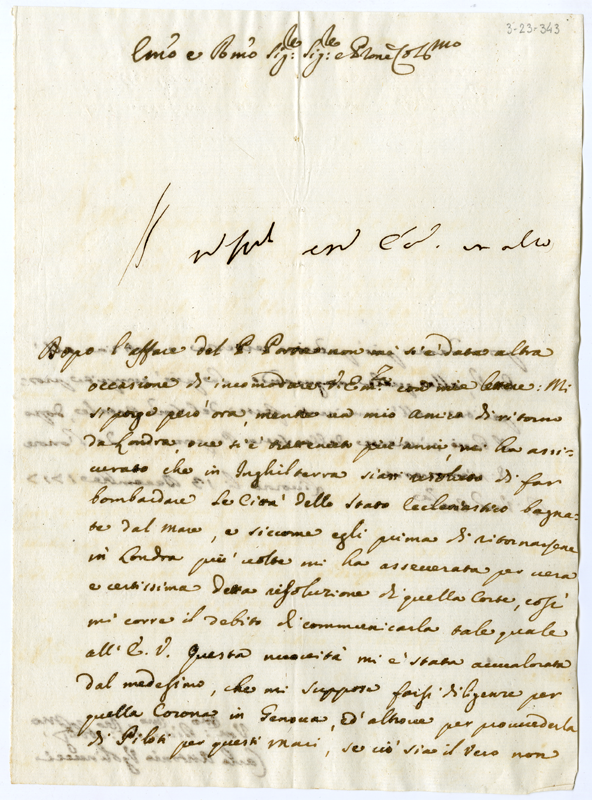 3-23-343
Em̃o e Rm̃o Sig:re Sig:re e Pron̄e Col:mo
Dopo l'affare del P. Porta non mi si è data altra
occasione di incomodare V. Em:za con mie lettere: Mi
si porge però ora, mentre un mio amico di ritorno
da Londra, ove si è trattenuto più anni, mi ha assi=
curato che in Inghilterra siasi risoluto di far
bombardare le Città dello Stato Ecclesiastico bagna=
te dal mare, e siccome egli prima di ritornarsene
in Londra più volte mi ha asseverata per vera
e certissima detta risoluzione di quella Corte, così
mi corre il debito di communicarla tale quale
all' E. V. Questa mi è stata avvalorata
dal medesimo, che mi suppose farsi diligenze per
quella Corona in Genova, ed altrove per provvederla
di Piloti per questi mari, se ciò sia il vero non